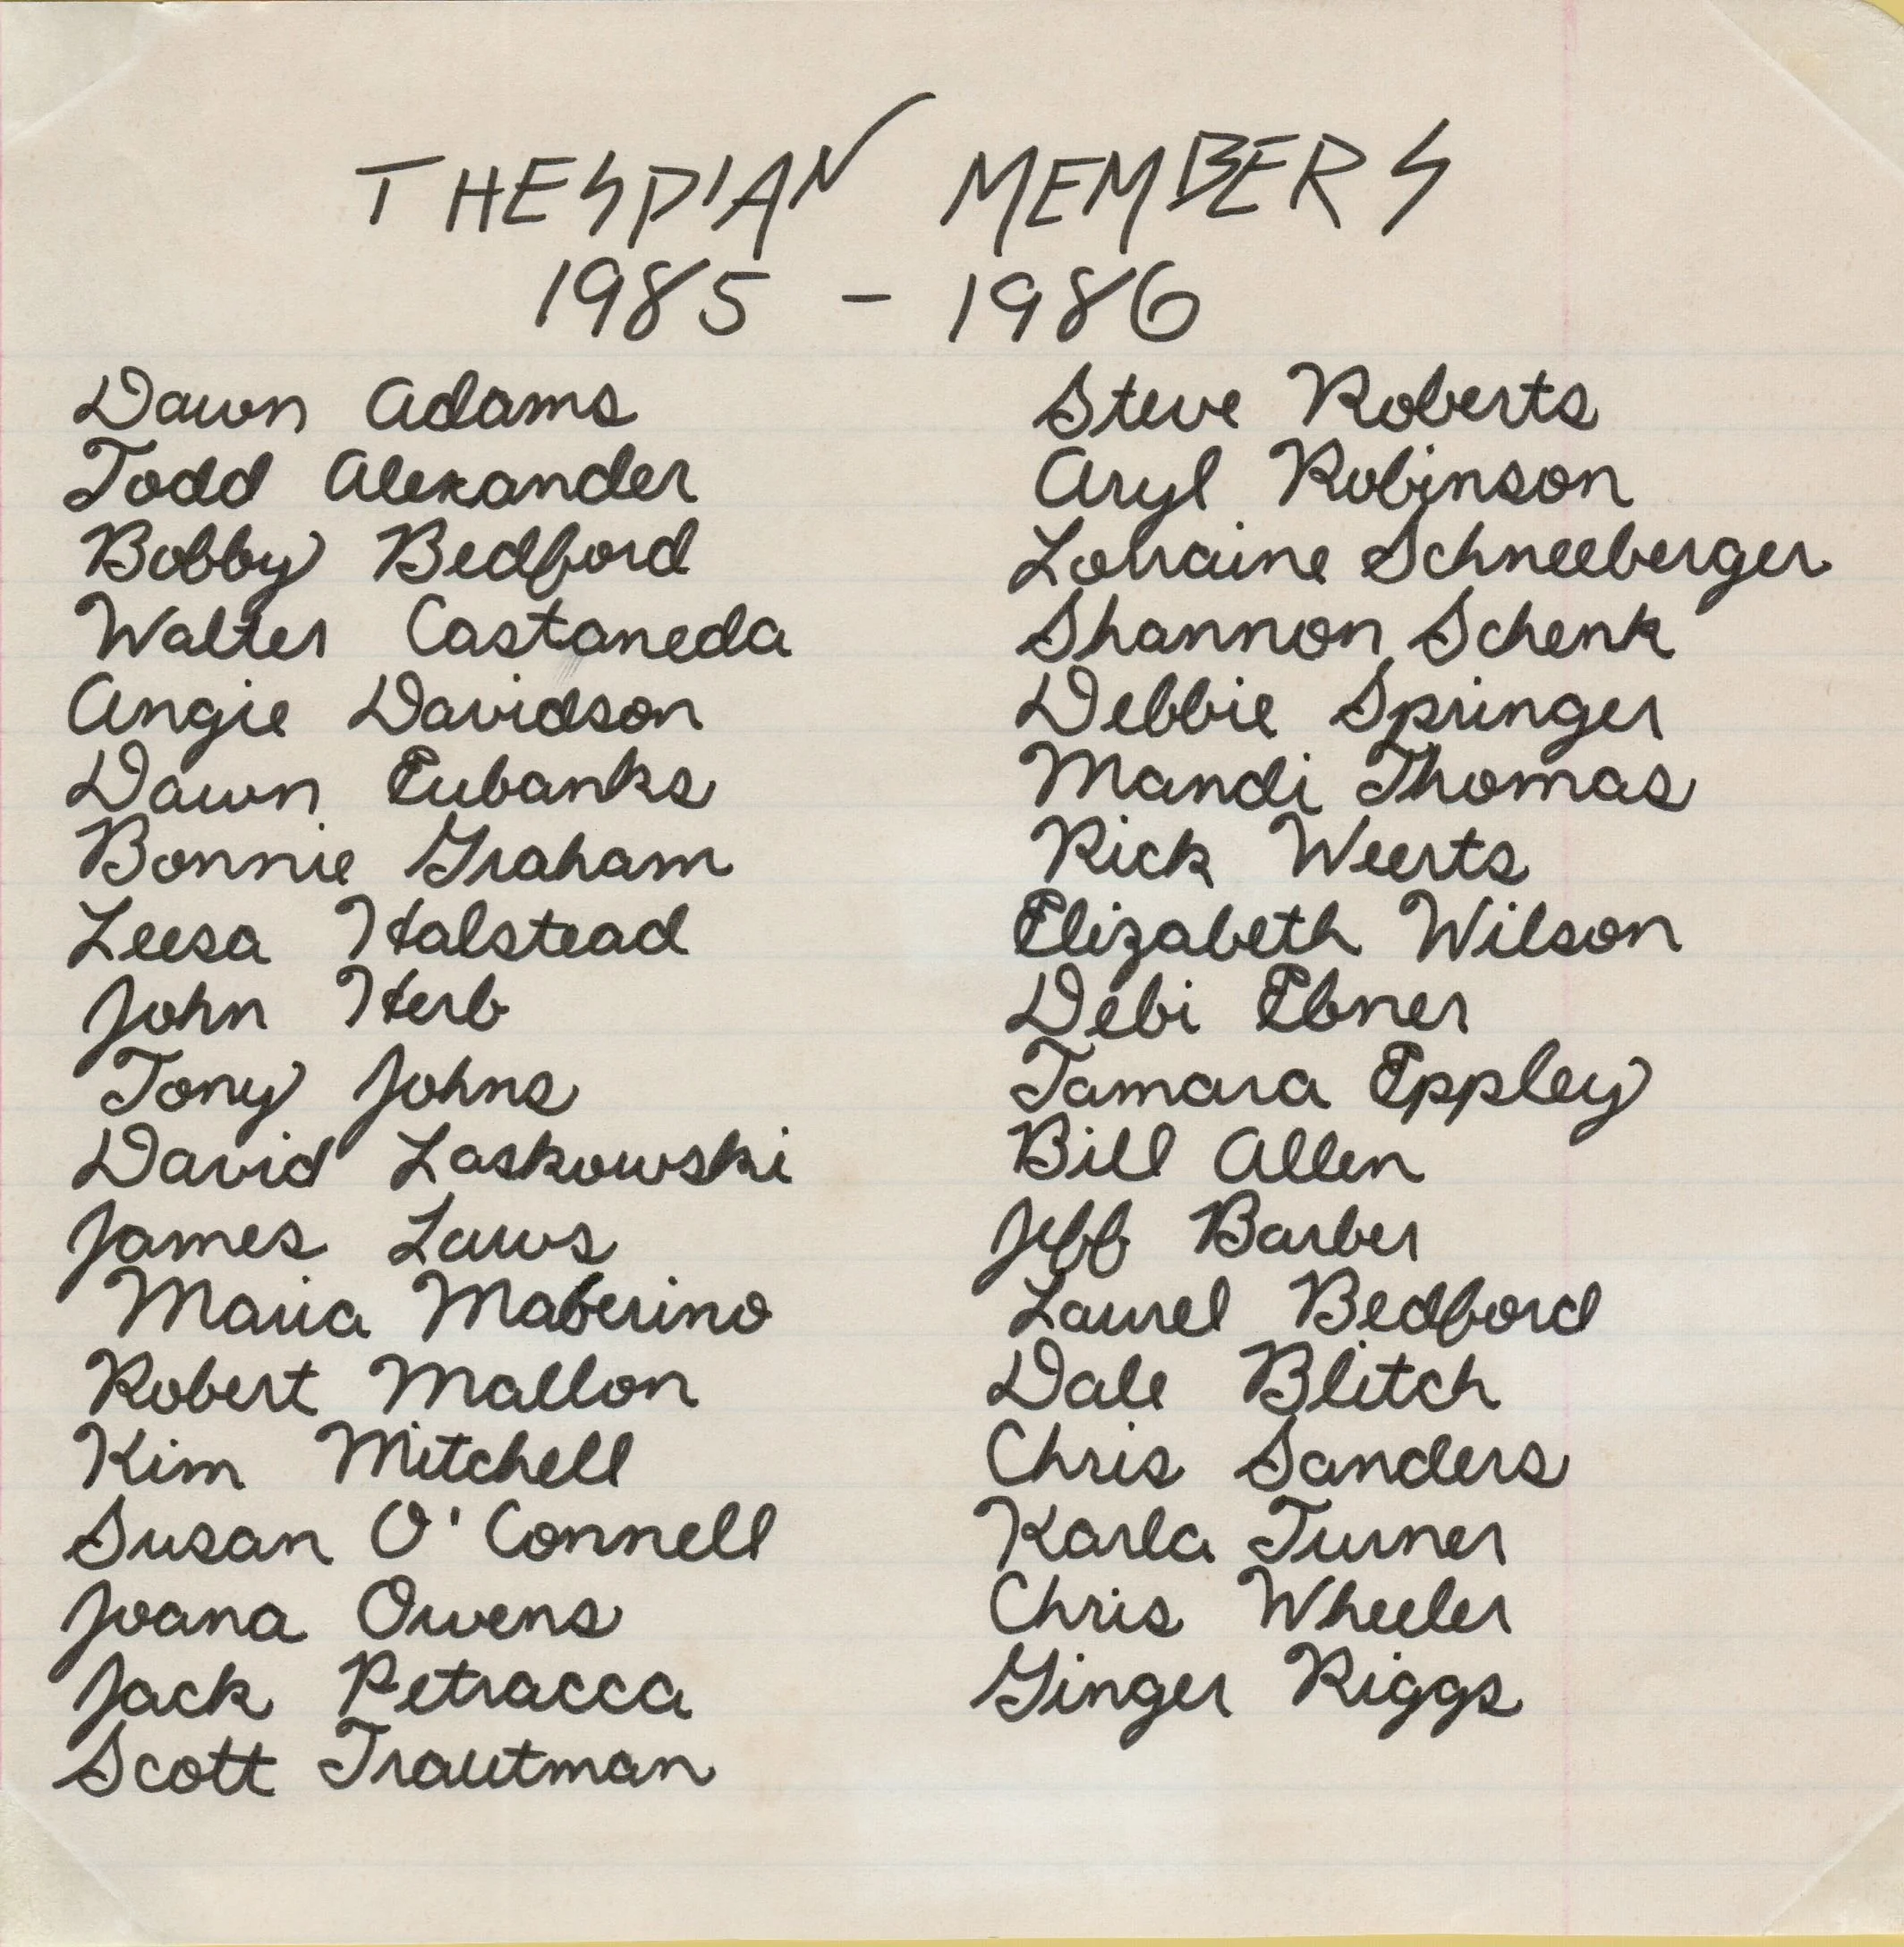 THESPIAN MEMBERS
1985 - 1986
Dawn Adams
Todd Alexander
Bobby Bedford
Walter Castaneda
Angie Davidson
Dawn Eubanks
Bonnie Graham
Leesa Halstead
John Herb
Tony Johns
David Laskowski
James Laws
Maria Maberino
Robert Mallon
Kim Mitchell
Susan O'Connell
Joana Owens
Jack Petracca
Scott Trautman
Steve Roberts
Aryl Robinson
Lorraine Schneeberger
Shannon Schenk
Debbie Springer
Mandi Thomas
Rick Weerts
Elizabeth Wilson
Debi Ebner
Tamara Eppley
Bill Allen
Jeff Barber
Laurel Bedford
Dale Blitch
Chris Sanders
Karla Turner
Chris Wheeler
Ginger Riggs